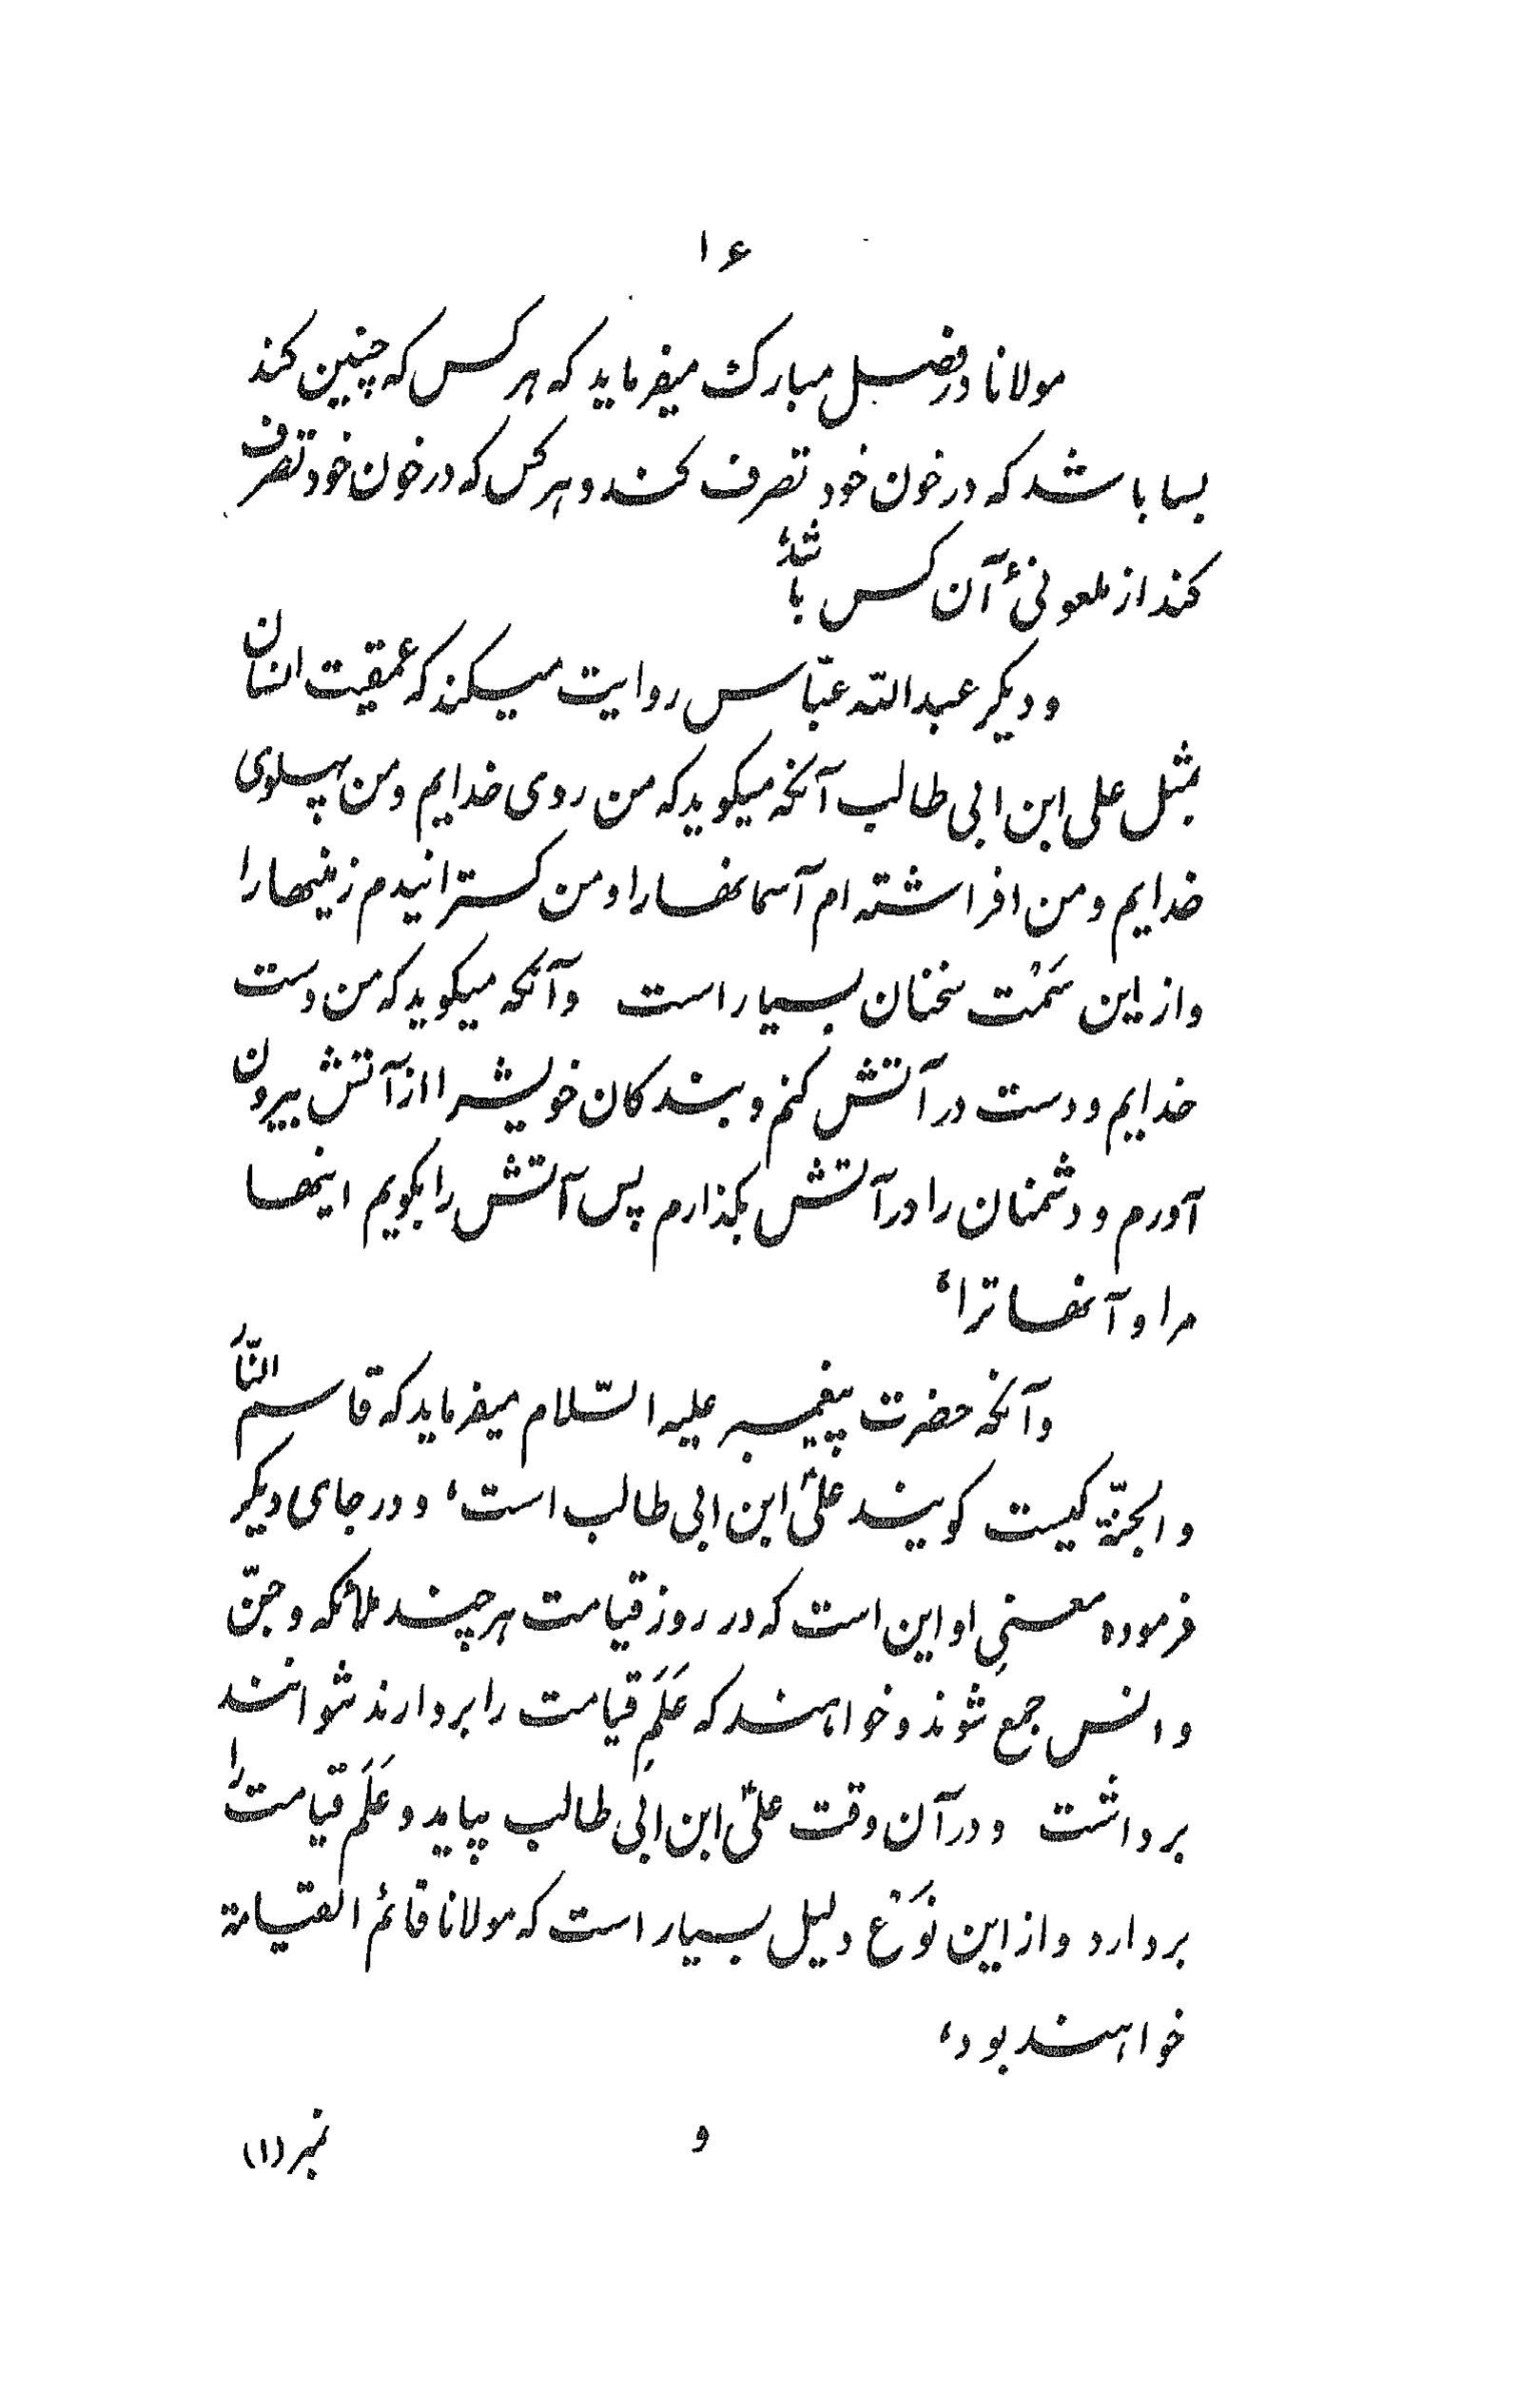 ۱۶
مولانا در فصل مبارک میفرماید که هر کس که چنین کند
بسا باشد که در خون خود تصرف کند و هر کس که در خون خود تصرف
کند از ملعونئ آن کس باشد،
و دیکر عبدالله عبّاس روایت میکند که عمقیت انسان
بمثل علی ابن ابی طالب آنکه میکوید که من روی خدایم و من پهلوی
خدایم و من افراشته ام آسمانها را و من کسترانیدم زمینها را
و از این سَمْت سخنان بسیار است و آنکه میکوید که من دست
خدایم و دست در آتش کنم و بندکان خویش را از آتش بیرون
آورم و دشمنان را در آتش بکذارم پس آتش را بکویم اینها
مرا و آنها ترا،
و آنکه حضرت پیغمبر علیه السّلام میفرماید که قاسم النّارَ
و الجنّة کیست کویند علیؑ ابن ابی طالب است، و در جای دیکر
فرموده معنیِ او این است که در روز قیامت هر چند ملائکه و جنّ
و انس جمع شوند و خواهند که عَلَمِ قیامت را بردارند نتوانند
برداشت و در آن وقت علیؑ ابن ابی طالب بیاید و عَلَم قیامت را
بردارد و از این نَوْع دلیل بسیار است که مولانا قائم القیامة
خواهند بود،
و
نمبر (۱)